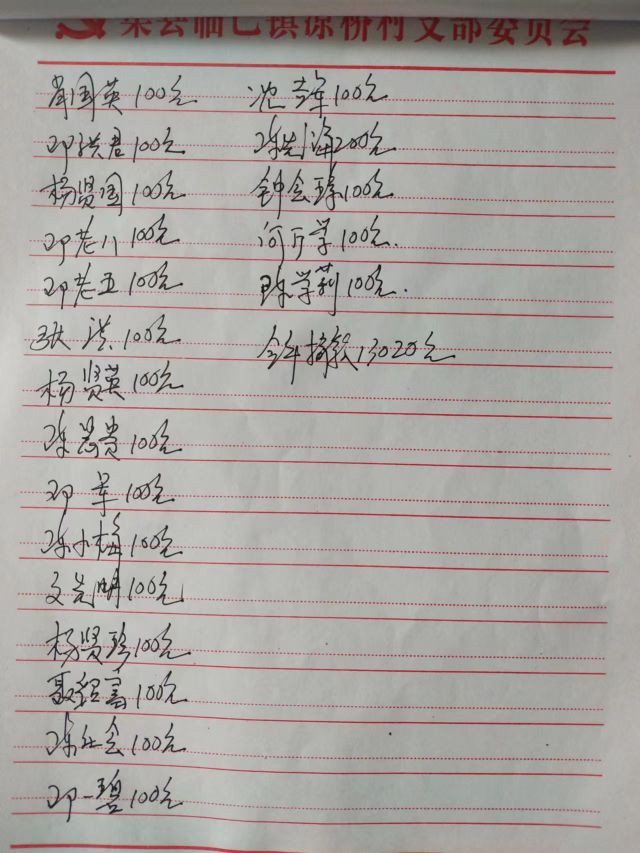 渠县临巴镇凉桥村支部委员会
肖国英100元
邓洪君100元
杨贤国100元
邓老八100元
邓老五100元
张洪100元
杨贤英100元
陈思贵100元
邓军100元
陈小梅100元
文光明100元
杨贤珍100元
聂绍富100元
陈仕会100元
邓一碧100元
沈吉军100元
陈刚海200元
钟会琼100元
何万学100元.
陈学莉100元.
全年捐款13020元